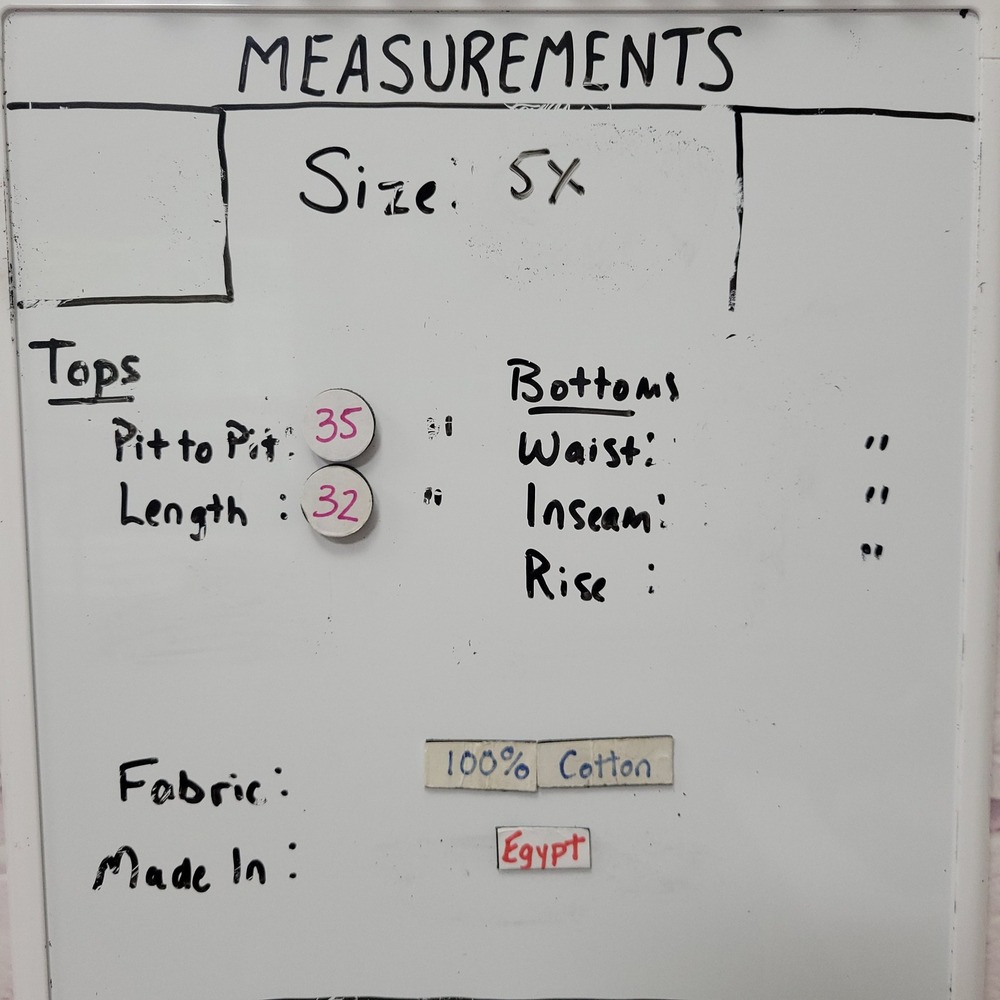 MEASUREMENTS
Size: 5X
Tops
Pit to Pit: 35 "
Length : 32 "
Bottoms
Waist: "
Inseam: "
Rise : "
Fabric: 100% Cotton
Made In: Egypt